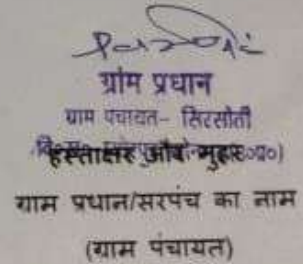 ग्राम प्रधान
ग्राम पंचायत- सिरसोती
हस्ताक्षर और मुहर
ग्राम प्रधान/सरपंच का नाम
(ग्राम पंचायत)